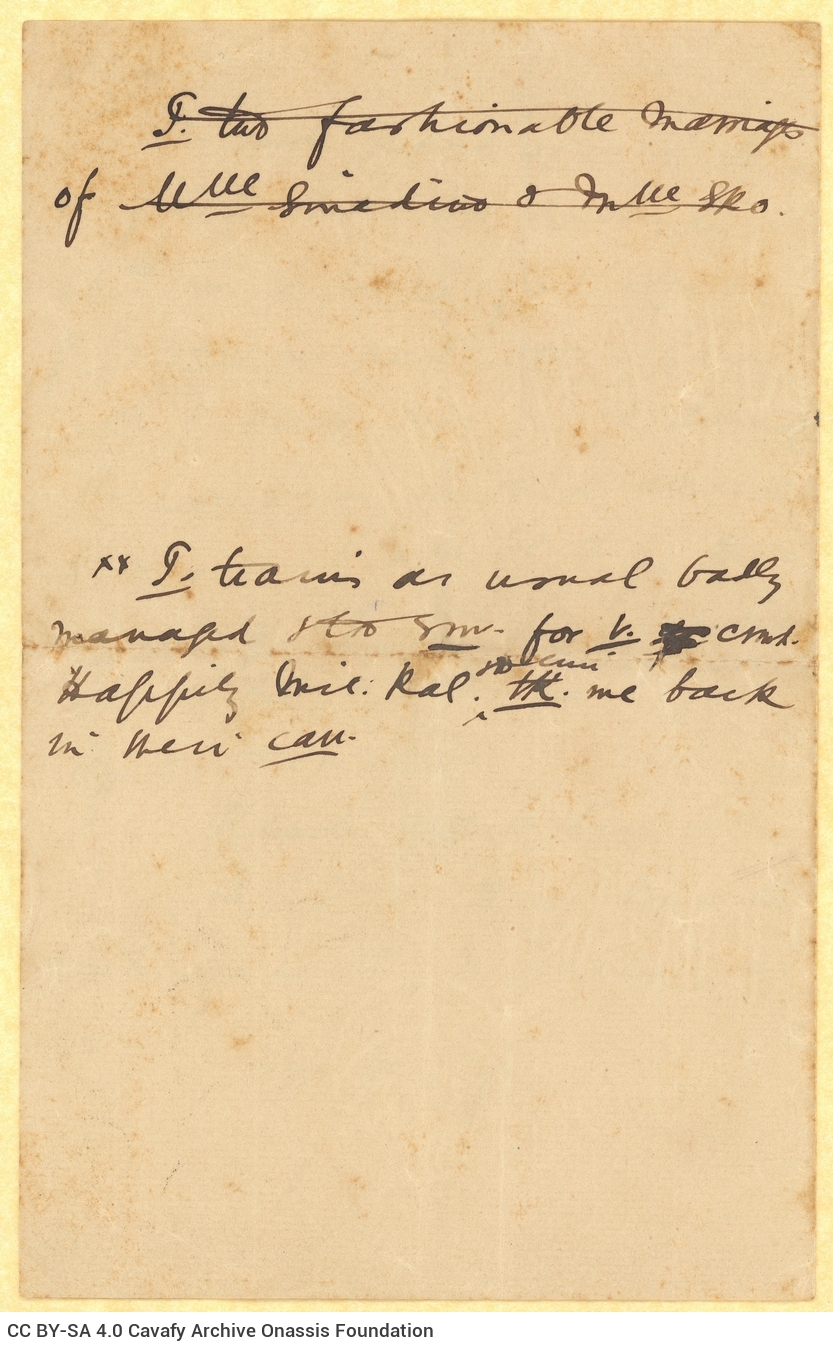 T. two fashionable marriages
of Mlle Sinadino & Mlle Sko.
xx T. trains as usual badly
managed for v. cmt.
Happily Mic. Ral. tk. me back
in their carr.
CC BY-SA 4.0 Cavafy Archive Onassis Foundation